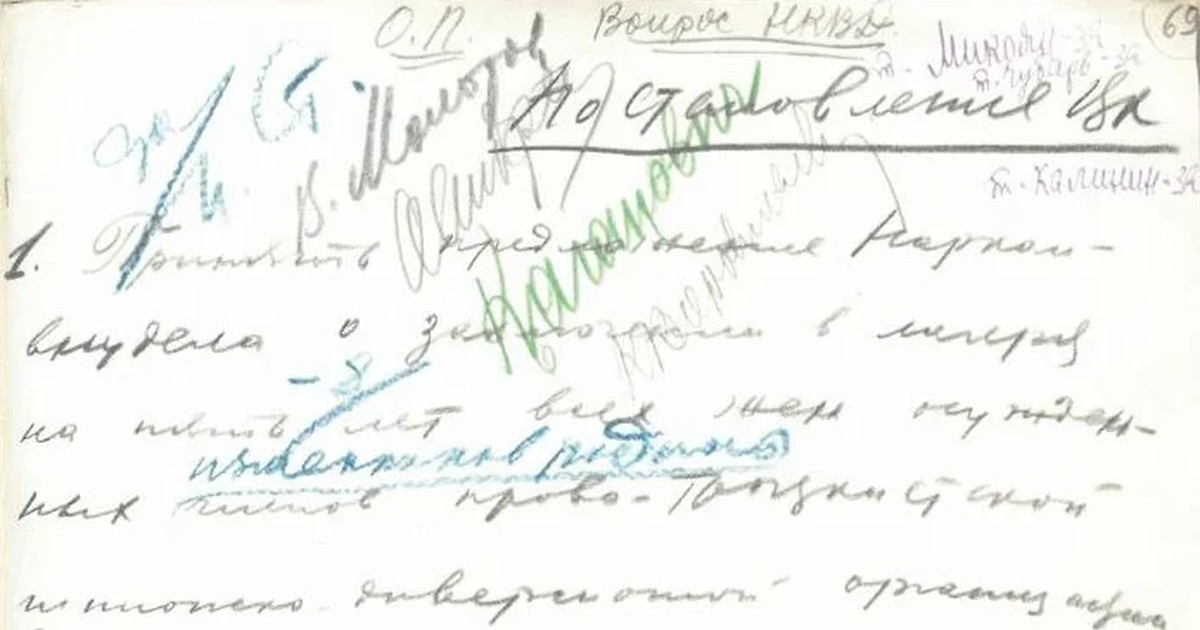 О.П. Вопрос НКВД. 69
т. Микоян-за
т. Чубарь-за
Постановление ЦК
за И. Ст.
В. Молотов
Каганович
Ворошилов
т. Калинин-за
1. Принять предложение Нарком-
внудела о заключении в лагеря
- 8
на пять лет всех жен осужден-
изменников родины
ных членов право-троцкистской
шпионско-диверсионной организации